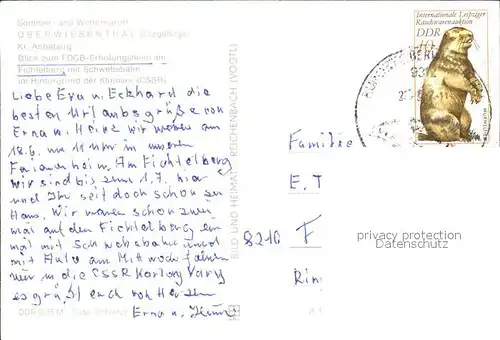 Sommer- und Wintersportort
OBERWIESENTHAL (Erzgebirge)
Kr. Annaberg
Blick zum FDGB-Erholungsheim am
Fichtelberg mit Schwebebahn
im Hintergrund der Klinovec (CSSR)
Liebe Erna u. Eckhard die
besten Urlaubsgrüße von
Erna u. Heinz wir waren am
18.6. um 11 Uhr in unseren
Ferienheim. Am Fichtelberg
wir sind bis zum 1.7. hier
und Ihr seit doch schon zu
Haus. Wir waren schon zwei
mal auf den Fichtelberg ein
mal mit Schwebebahn und
mit Auto am Mittwoch fahren
wir in die CSSR Karlovy Vary
es grüßt euch von Herzen
Erna u. Heinz
BILD UND HEIMAT REICHENBACH (VOGTL)
Internationale Leipziger
Rauchwarenauktion
DDR
10
Familie
E. T
8210 F
Rin
privacy protection
Datenschutz